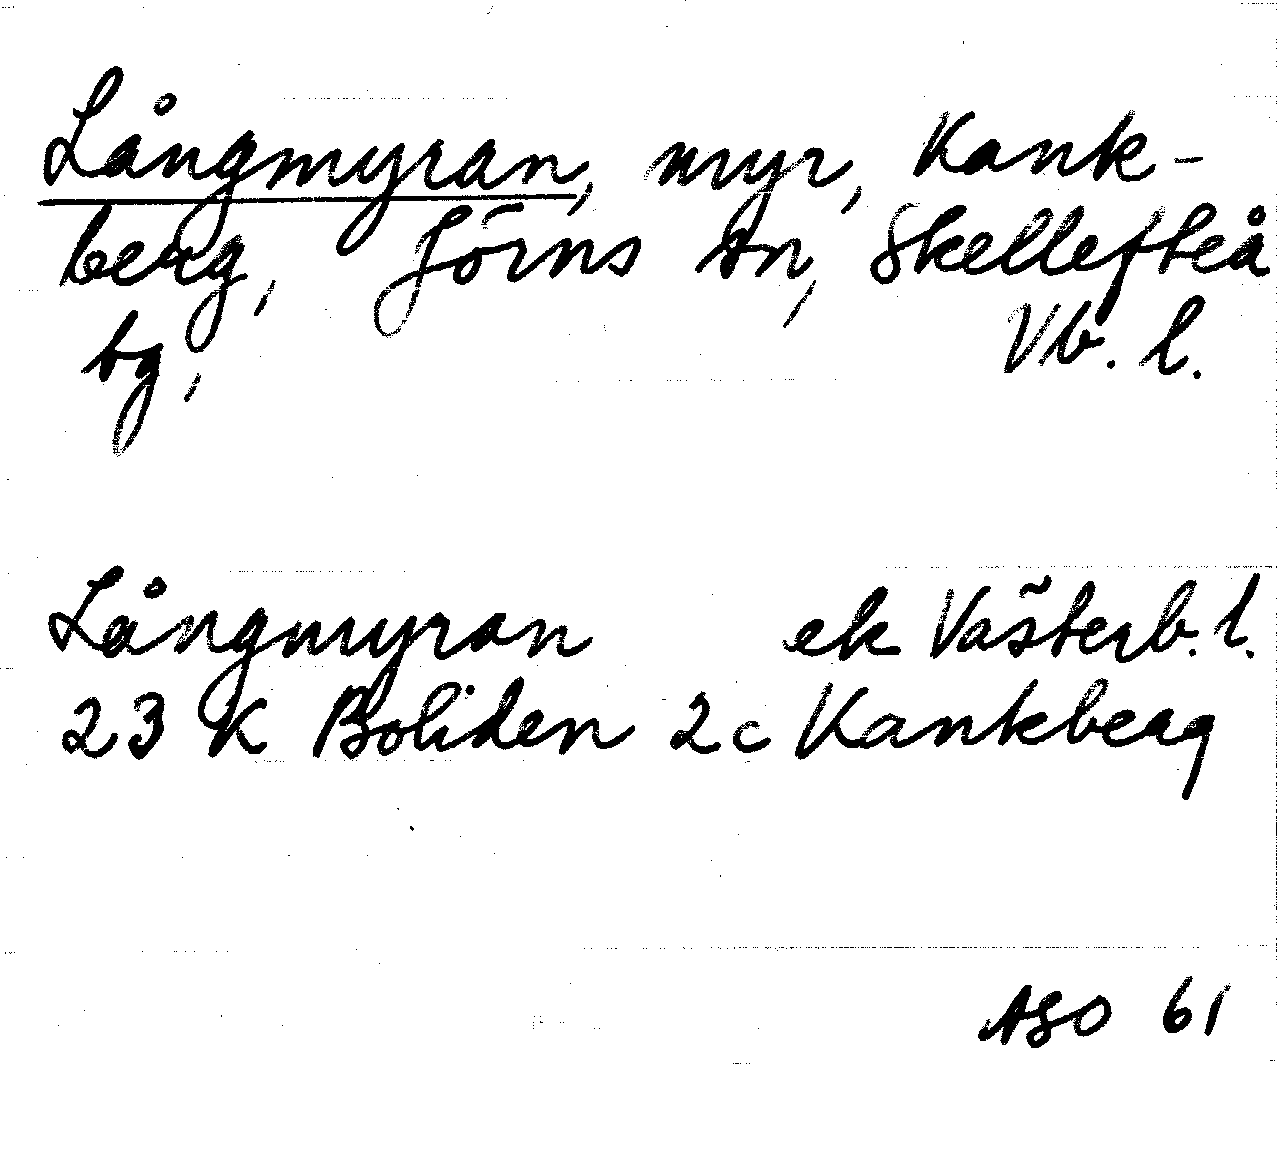 Långmyran, myr, Kank-
berg, Jörns sn, Skellefteå
tg, Vb. l.
Långmyran ek Västerb. l.
23 K Boliden 2c Kankberg
ASO 61